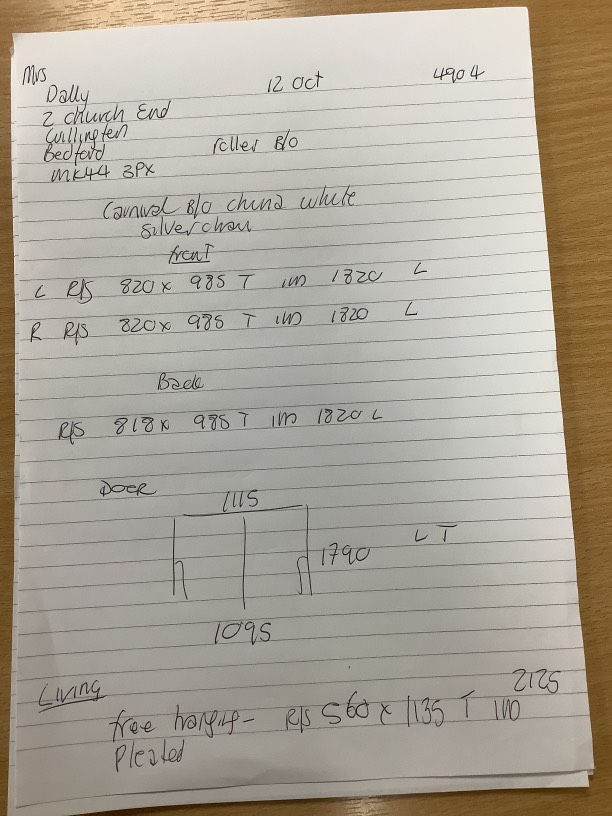 Mrs
Dally 12 Oct 4904
2 Church End
Willington
Bedford roller B/O
MK44 3PX
Carnival B/O china white
silver chain
front
L R/S 820 x 985 T 1820 L
R R/S 820 x 985 T 1820 L
Back
R/S 818 x 985 T 1820 L
DOOR
1115
1790 L T
1095
Living
2125
free hanging - R/S 560 x 1135 T
Pleated